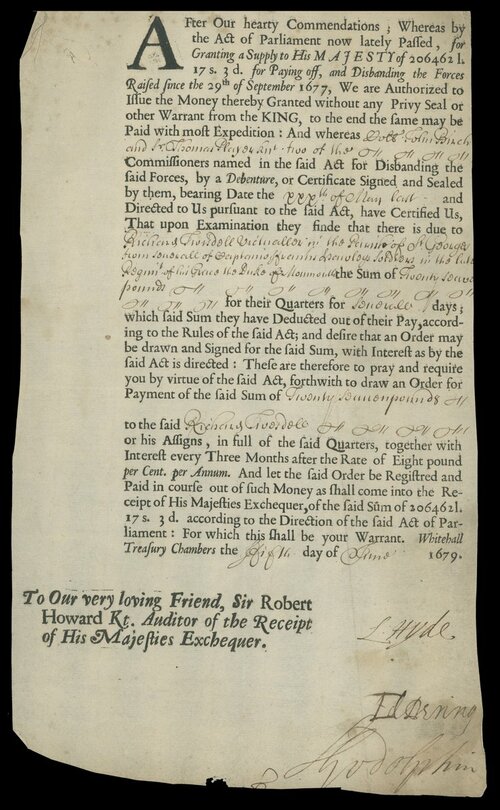 AFter Our hearty Commendations ; Whereas by
the Act of Parliament now lately Passed, for
Granting a Supply to His MAJESTY of 206462 l.
17 s. 3 d. for Paying off, and Disbanding the Forces
Raised since the 29th of September 1677, We are Authorized to
Issue the Money thereby Granted without any Privy Seal or
other Warrant from the KING, to the end the same may be
Paid with most Expedition : And whereas Coll John Birch
and Sr Thomas Player Knt two of the
Commissioners named in the said Act for Disbanding the
said Forces, by a Debenture, or Certificate Signed and Sealed
by them, bearing Date the xxxth of May last and
Directed to Us pursuant to the said Act, have Certified Us,
That upon Examination they finde that there is due to
Richard Twisdell Victualler in the Parish of St Georges
from severall of Captaine Francis Hawleys Soldiers in the late
Regimt of his Grace the Duke of Monmouth the Sum of Twenty Seaven
pounds
for their Quarters for Severall days ;
which said Sum they have Deducted out of their Pay, accord-
ing to the Rules of the said Act; and desire that an Order may
be drawn and Signed for the said Sum, with Interest as by the
said Act is directed : These are therefore to pray and require
you by virtue of the said Act, forthwith to draw an Order for
Payment of the said Sum of Twenty Seaven pounds
to the said Richard Twisdell
or his Assigns, in full of the said Quarters, together with
Interest every Three Months after the Rate of Eight pound
per Cent. per Annum. And let the said Order be Registred and
Paid in course out of such Money as shall come into the Re-
ceipt of His Majesties Exchequer, of the said Sum of 206462 l.
17 s. 3 d. according to the Direction of the said Act of Par-
liament : For which this shall be your Warrant. Whitehall
Treasury Chambers the fifth day of June 1679.
To Our very loving Friend, Sir Robert
Howard Kt. Auditor of the Receipt
of His Majesties Exchequer.
L Hyde
Ed Dering
S Godolphin